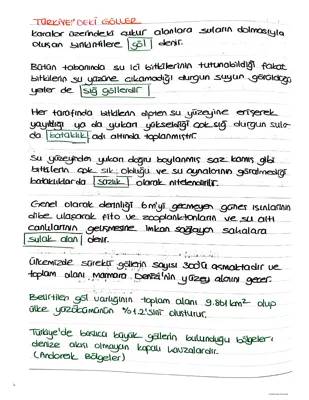 TÜRKİYE'DEKİ GÖLLER
Karalar üzerindeki çukur alanlara suların dolmasıyla
oluşan birikintilere göl denir.
Bütün tabanında su içi bitkilerinin tutunabildiği fakat
bitkilerin su yüzüne çıkamadığı durgun suyun görüldüğü
yerler de sığ göllerdir
Her tarafında bitkilerin dipten su yüzeyine erişerek
yayıldığı ya da yukarı yükseldiği çok sığ durgun sular
da bataklık adı altında toplanmıştır.
Su yüzeyinden yukarı doğru boylanmış saz kamış gibi
bitkilerin çok sık olduğu ve su aynalarının görülmediği
bataklıklar da sazlık olarak nitelendirilir.
Genel olarak derinliği 6m'yi geçmeyen güneş ışınlarının
dibe ulaşarak fito ve zooplanktonların ve su altı
canlılarının gelişmesine imkan sağlayan sahalara
sulak alan denir.
Ülkemizde sürekli göllerin sayısı 300'ü aşmaktadır ve
toplam alanı Marmara Denizi'nin yüzey alanını geçer.
Belirtilen göl varlığının toplam alanı 9.861 km² olup
ülke yüzölçümünün %1.2'sini oluşturur.
Türkiye'de başlıca büyük göllerin bulunduğu bölgeler;
denize akışı olmayan kapalı havzalardır.
(Andoreik Bölgeler)